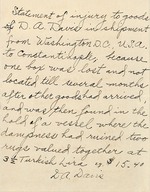 Statement of injury to goods
of D. A. Davis in shipment
from Washington D.C., U.S.A.
to Constantinople, because
one box was lost and not
located till several months
after other goods had arrived
and was then found in the
hold of a vessel where the
dampness had ruined two
rugs valued together at
3½ Turkish Lira or $15.40
D.A. Davis